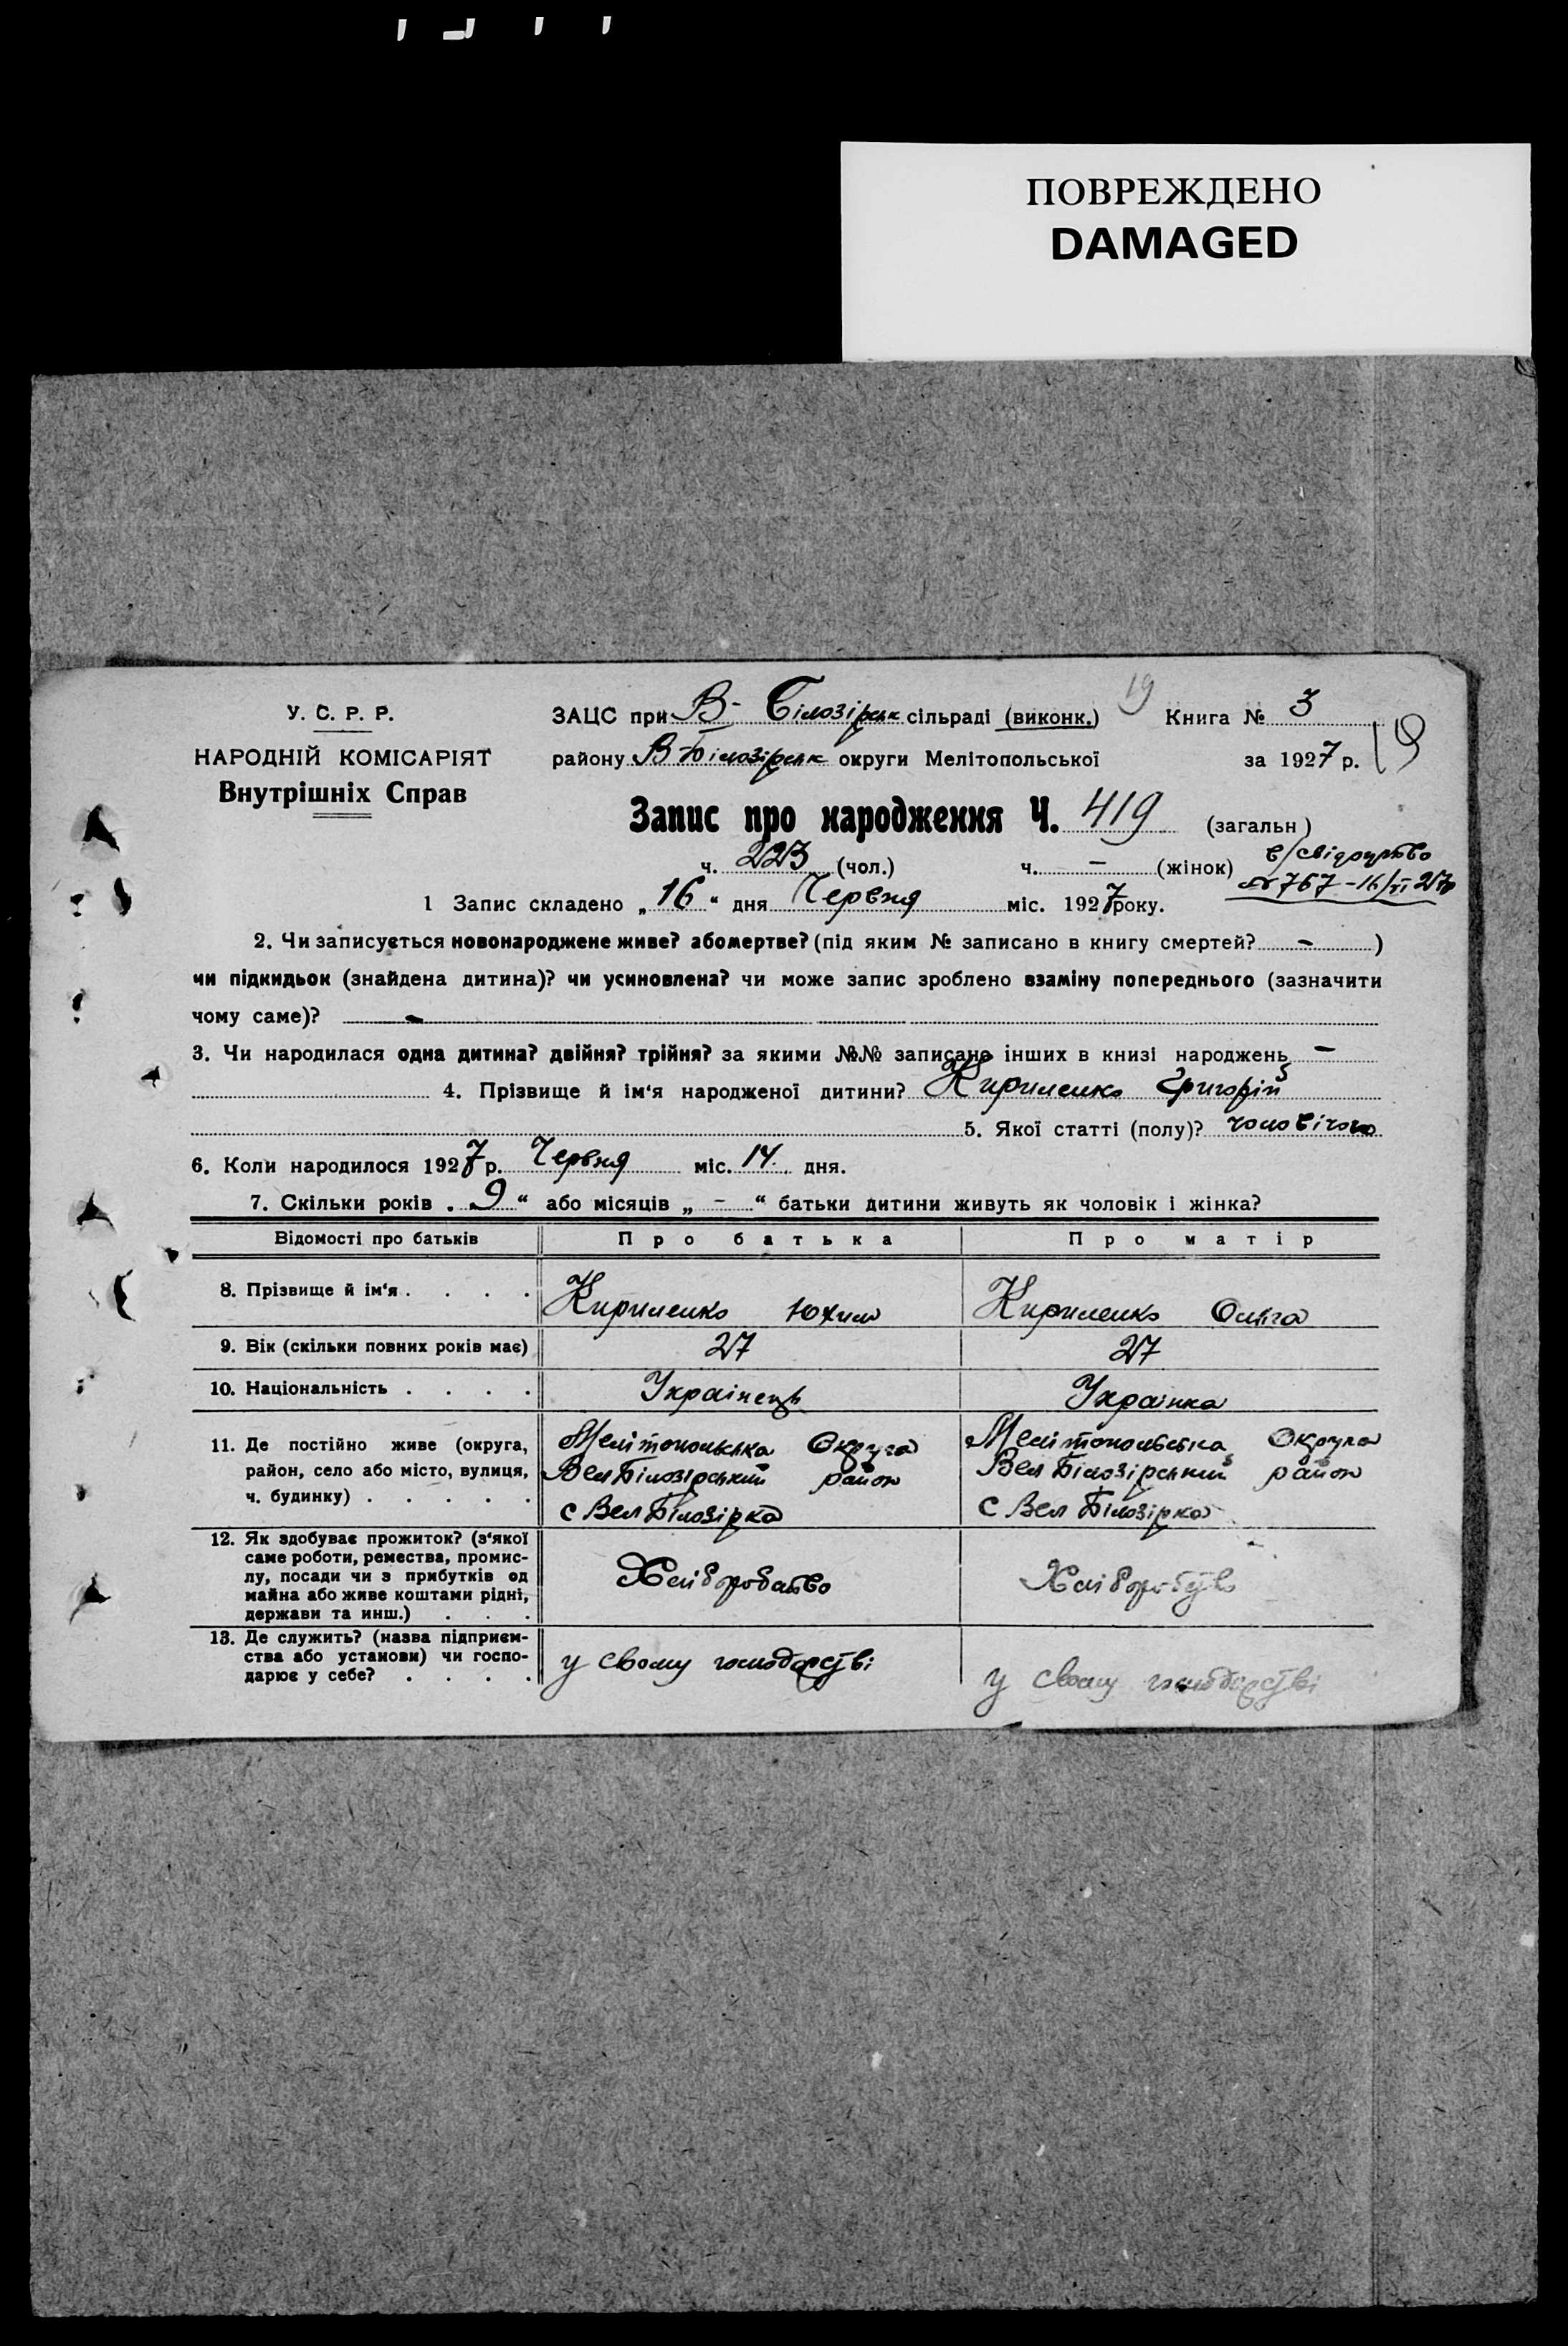 ПОВРЕЖДЕНО
DAMAGED
У. С. Р. Р.
НАРОДНІЙ КОМІСАРІЯТ
Внутрішніх Справ
19
ЗАЦС при В- Білозірськ сільраді (виконк.) Книга № 3
району В-Білозірськ округи Мелітопольської за 1927 р.
19
Запис про народження Ч. 419 (загальн)
ч. 223 (чол.) ч. - (жінок)
в/свідоцтво
№ 767 - 16/VI 27р
1 Запис складено „16“ дня Червня міс. 1927 року.
2. Чи записується новонароджене живе? або мертве? (під яким № записано в книгу смертей? - )
чи підкидьок (знайдена дитина)? чи усиновлена? чи може запис зроблено взаміну попереднього (зазначити
чому саме)? -
3. Чи народилася одна дитина? двійня? трійня? за якими №№ записано інших в книзі народжень -
4. Прізвище й ім‘я народженої дитини? Кириленко Григорій
5. Якої статті (полу)? чоловічого
6. Коли народилося 1927 р. Червня міс. 14 дня.
7. Скільки років „ 9 “ або місяців „ - “ батьки дитини живуть як чоловік і жінка?
Відомості про батьків Про батька Про матір
8. Прізвище й ім‘я . . . . Кириленко Юхим Кириленко Ольга
9. Вік (скільки повних років має) 27 27
10. Національність . . . . Українець Українка
11. Де постійно живе (округа,
район, село або місто, вулиця,
ч. будинку) . . . . .
Мелітопольська Округа
Вел Білозірський район
с Вел Білозірка
Мелітопольська Округа
Вел Білозірський район
с Вел Білозірка
12. Як здобуває прожиток? (з‘якої
саме роботи, ремества, промис-
лу, посади чи з прибутків од
майна або живе коштами рідні,
держави та инш.) . . .
Хліборобство
Хліборобство
13. Де служить? (назва підприєм-
ства або установи) чи госпо-
дарює у себе? . . . .
у свому господарстві
у свому господарстві